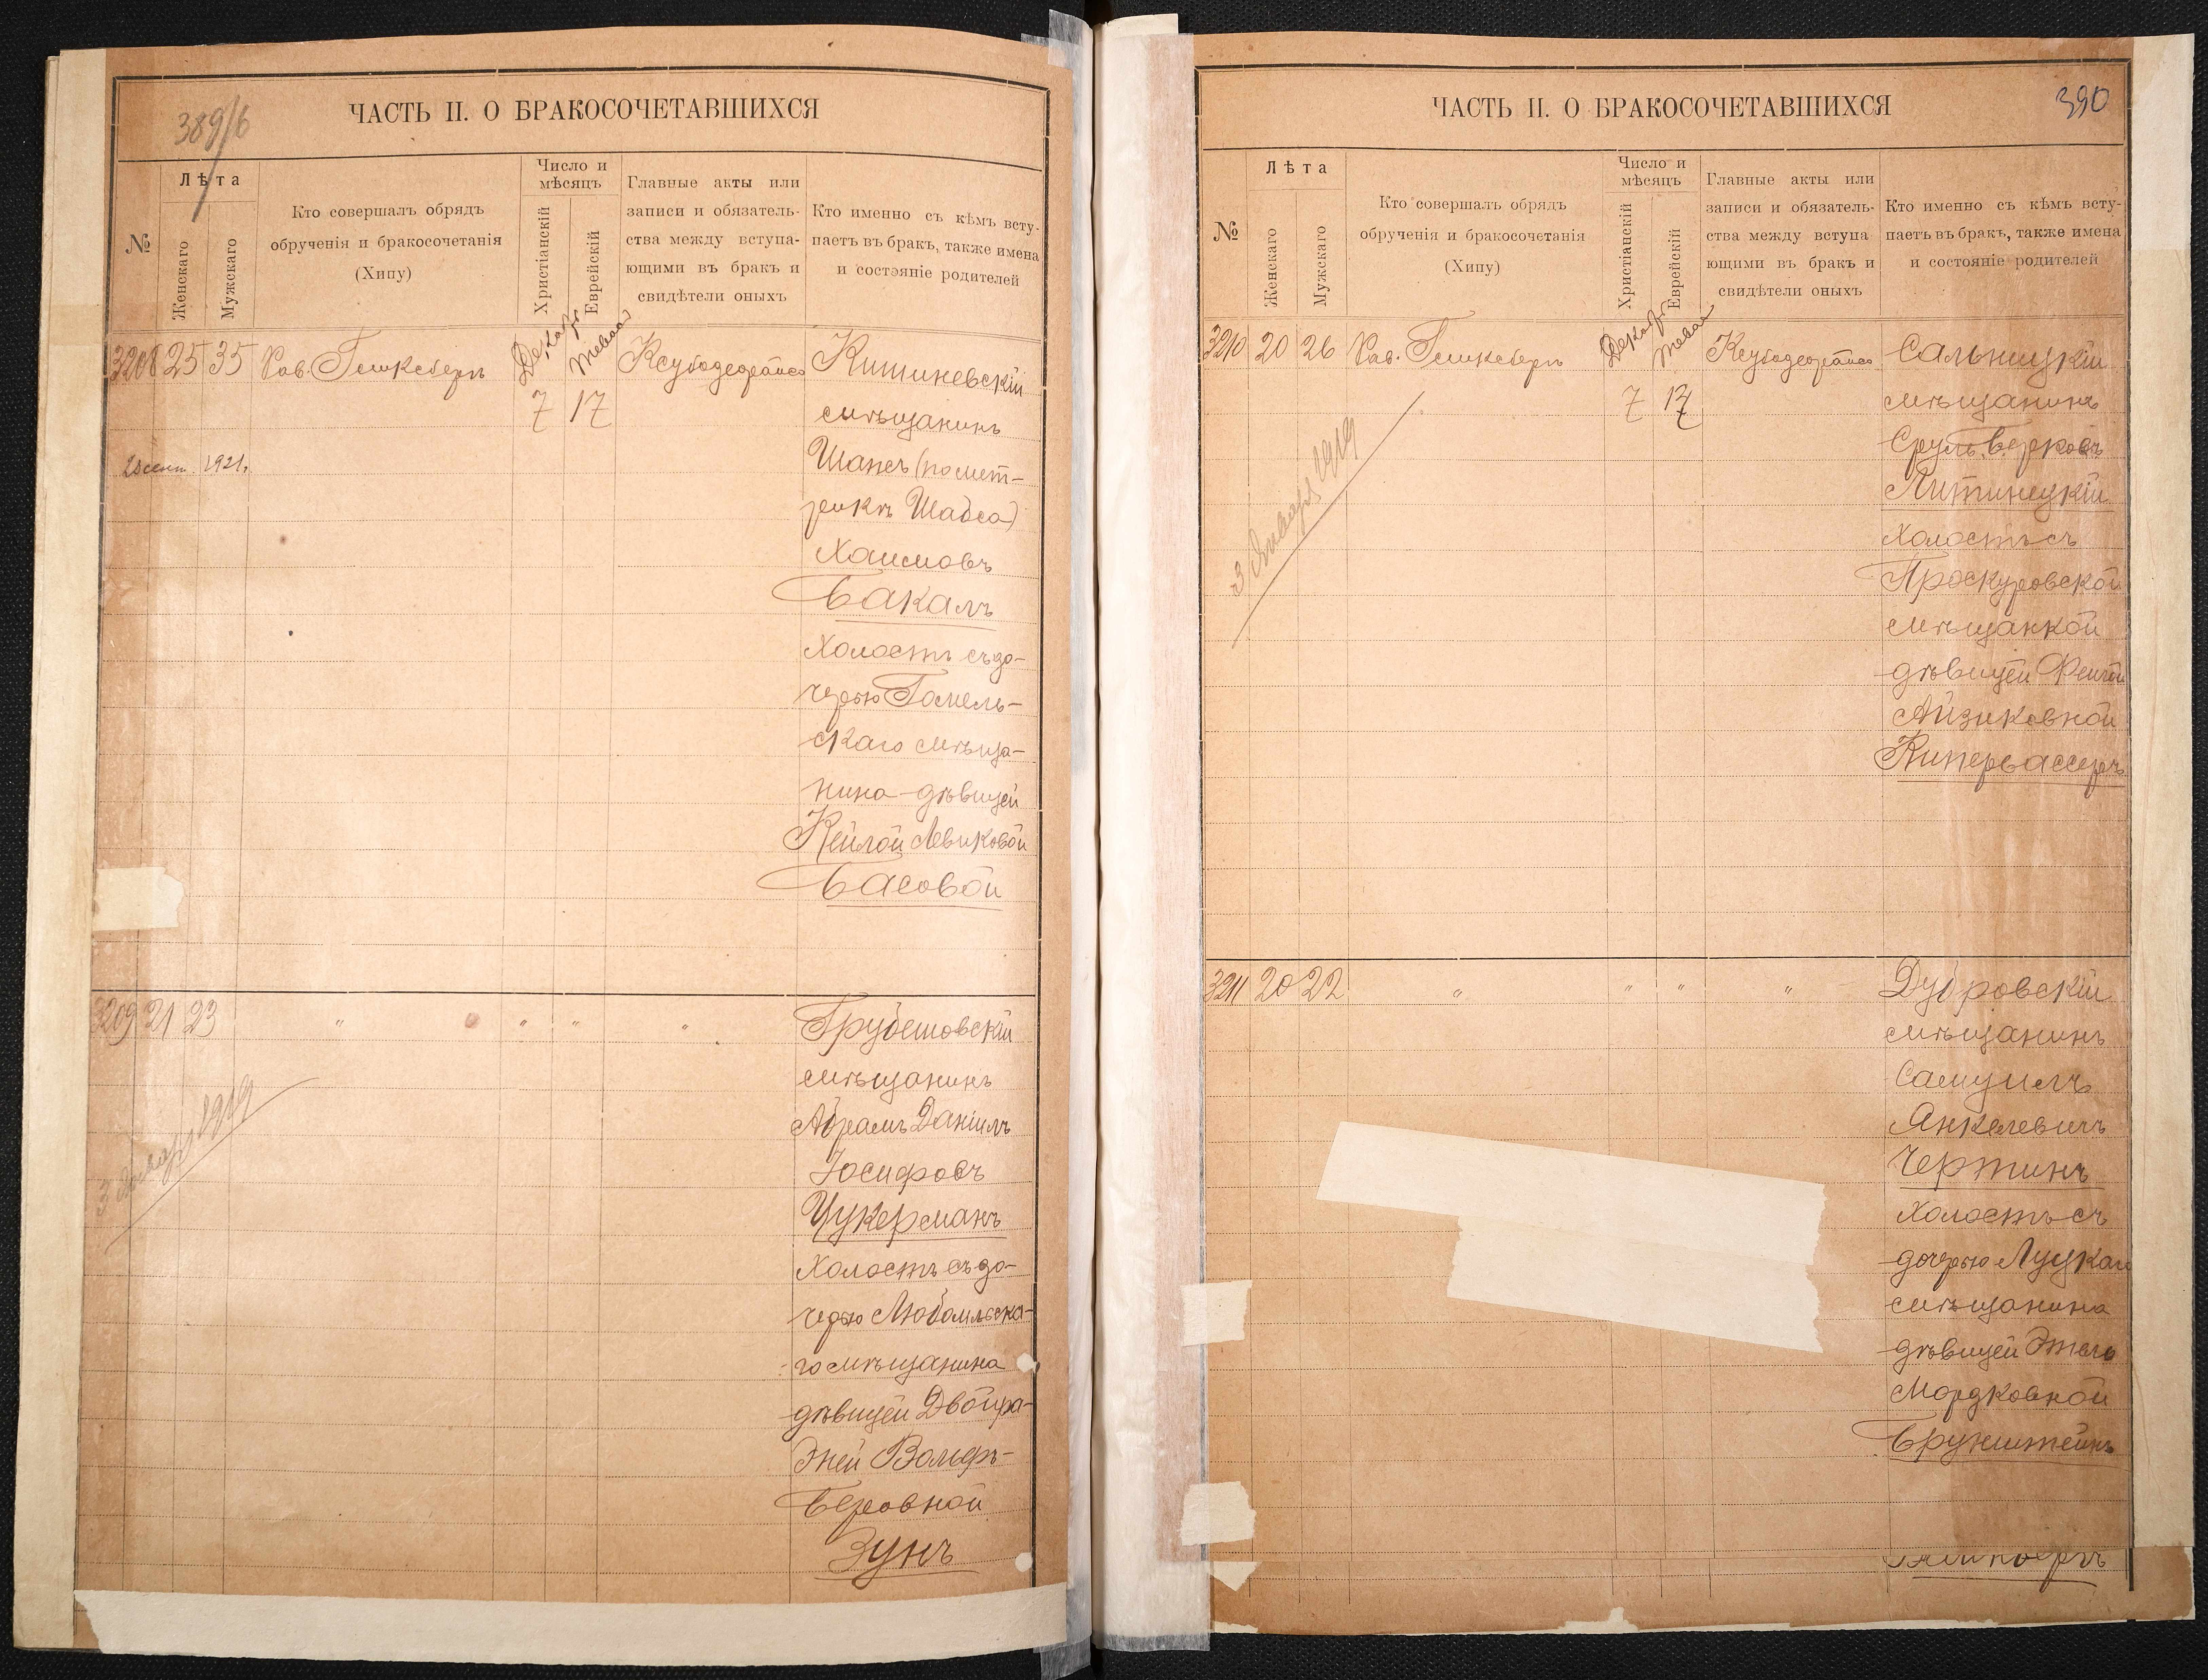 389/б
ЧАСТЬ II. О БРАКОСОЧЕТАВШИХСЯ
№
Лѣта
Женскаго
Мужскаго
Кто совершалъ обрядъ
обрученія и бракосочетанія
(Хипу)
Число и
мѣсяцъ
Христіанскій
Еврейскій
Главные акты или
записи и обязатель-
ства между вступа-
ющими въ бракъ и
свидѣтели оныхъ
Кто именно съ кѣмъ всту-
паетъ въ бракъ, также имена
и состояніе родителей
3208 25 35 Рав. Гинксберъ
7 17
Кишиневскій
мѣщанинъ
Шапсъ (по мет-
рикѣ Шабса)
Хаимовъ
Бакалъ
Холостъ съ до-
черью Гомель-
скаго мѣща-
нина дѣвицей
Кейлой Левиковой
Басовой
1921.
3209 21 23 " " " "
Грубешовскій
мѣщанинъ
Абрамъ Даніилъ
Іосифовъ
Цукерманъ
Холостъ съ до-
черью Любомльска-
го мѣщанина
дѣвицей Двойра-
Эней Вольфъ-
Беровной
Зунъ
3 Января 1919
390
ЧАСТЬ II. О БРАКОСОЧЕТАВШИХСЯ
№
Лѣта
Женскаго
Мужскаго
Кто совершалъ обрядъ
обрученія и бракосочетанія
(Хипу)
Число и
мѣсяцъ
Христіанскій
Еврейскій
Главные акты или
записи и обязатель-
ства между вступа
ющими въ бракъ и
свидѣтели оныхъ
Кто именно съ кѣмъ всту-
паетъ въ бракъ, также имена
и состояніе родителей
3210 20 26 Рав. Гинксберъ
7 17
Сальницкій
мѣщанинъ
Сруль Берковъ
Литинецкій
Холостъ съ
Проскуровской
мѣщанкой
дѣвицей Фейгой
Айзиковной
Кипервассеръ
3 Января 1919
3211 20 22 " " " "
Дубровскій
мѣщанинъ
Самуилъ
Янкелевичъ
Чертинъ
Холостъ съ
дочерью Луцкаго
мѣщанина
дѣвицей Этель
Мордковной
Брунштейнъ